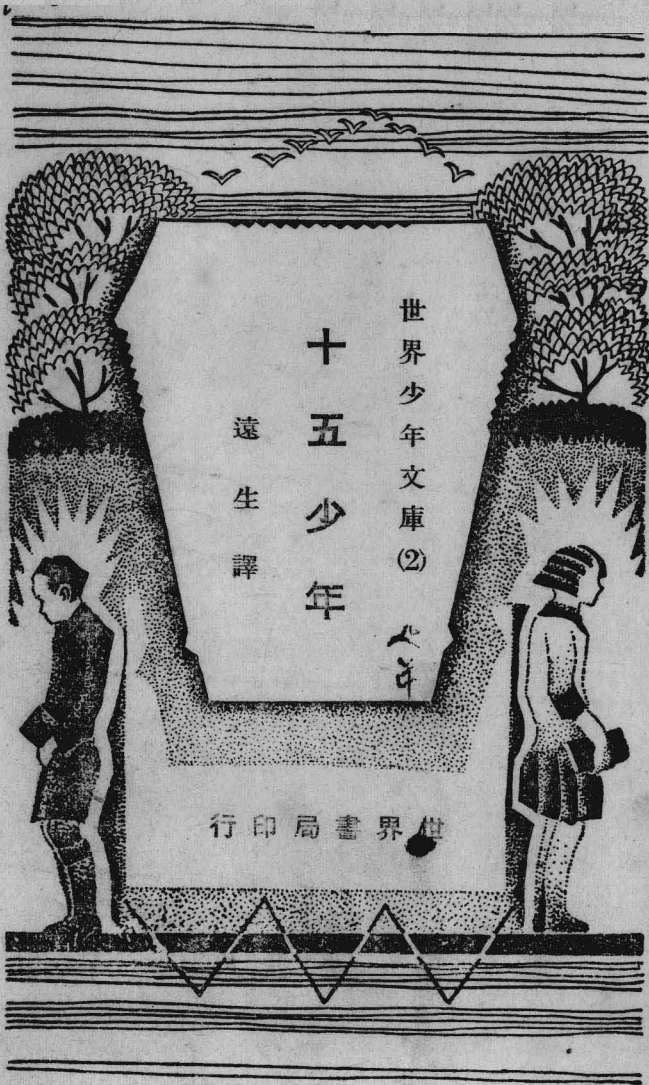 世界少年文庫(2)
十五少年
遠生譯
世界書局印行